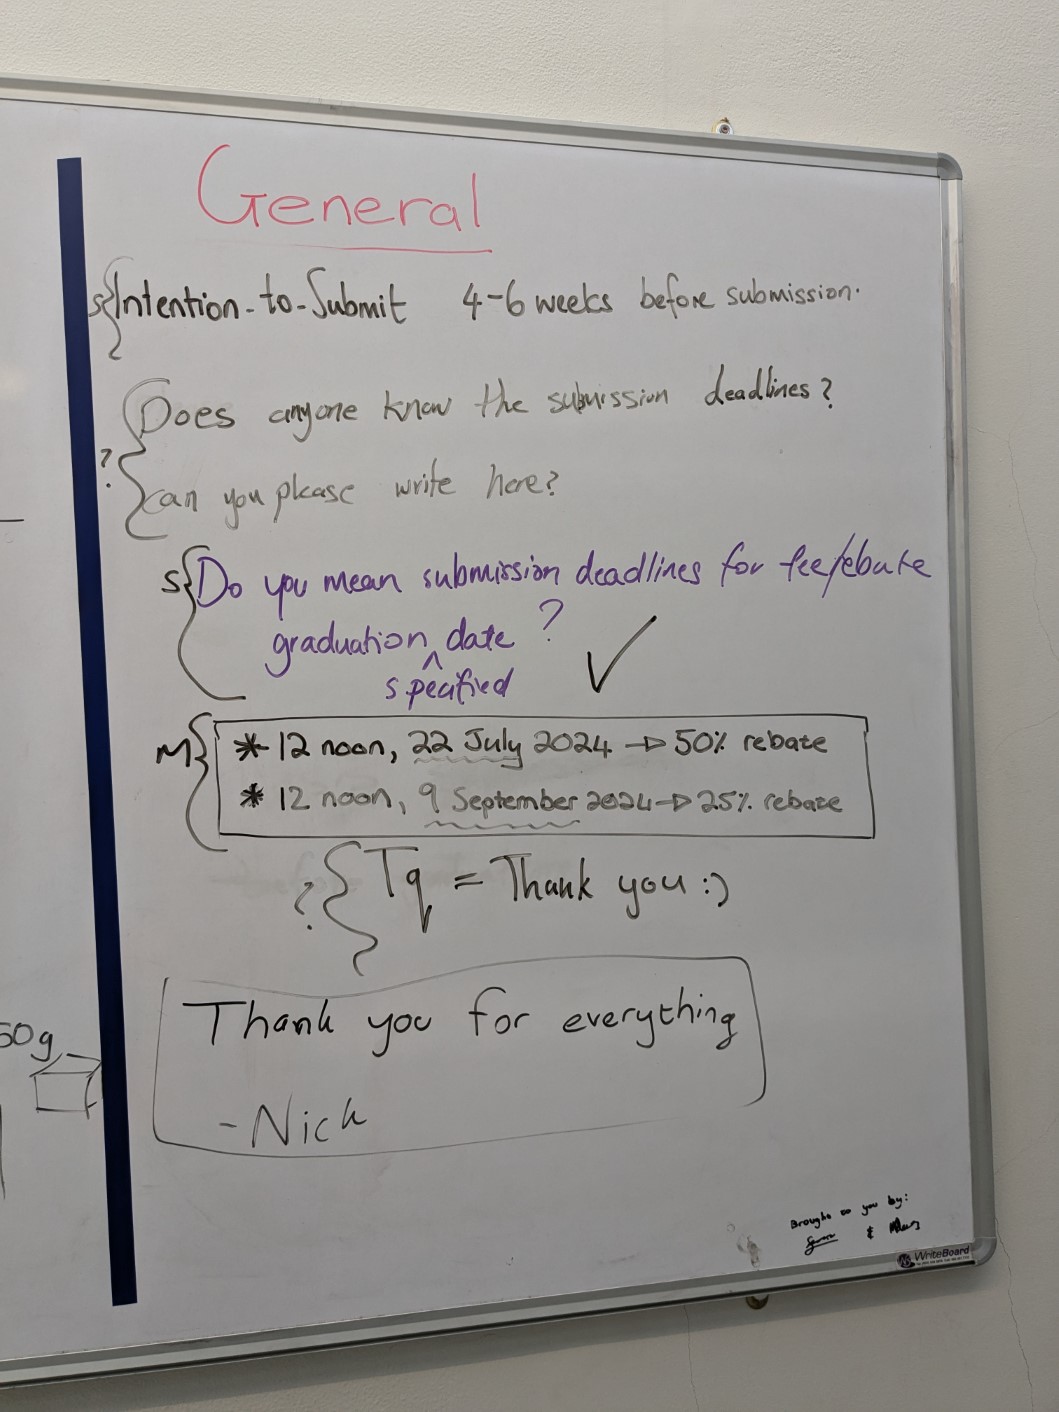 General
S{ Intention-to-Submit 4-6 weeks before submission.
Does anyone know the submission deadlines?
?{
can you please write here?
S{ Do you mean submission deadlines for fee/rebate
graduation ^ date ?
specified ✓
M{ * 12 noon, 22 July 2024 → 50% rebate
* 12 noon, 9 September 2024 → 25% rebate
?{ Tq = Thank you :)
Thank you for everything
50g
-Nick
Brought to you by:
&
WriteBoard